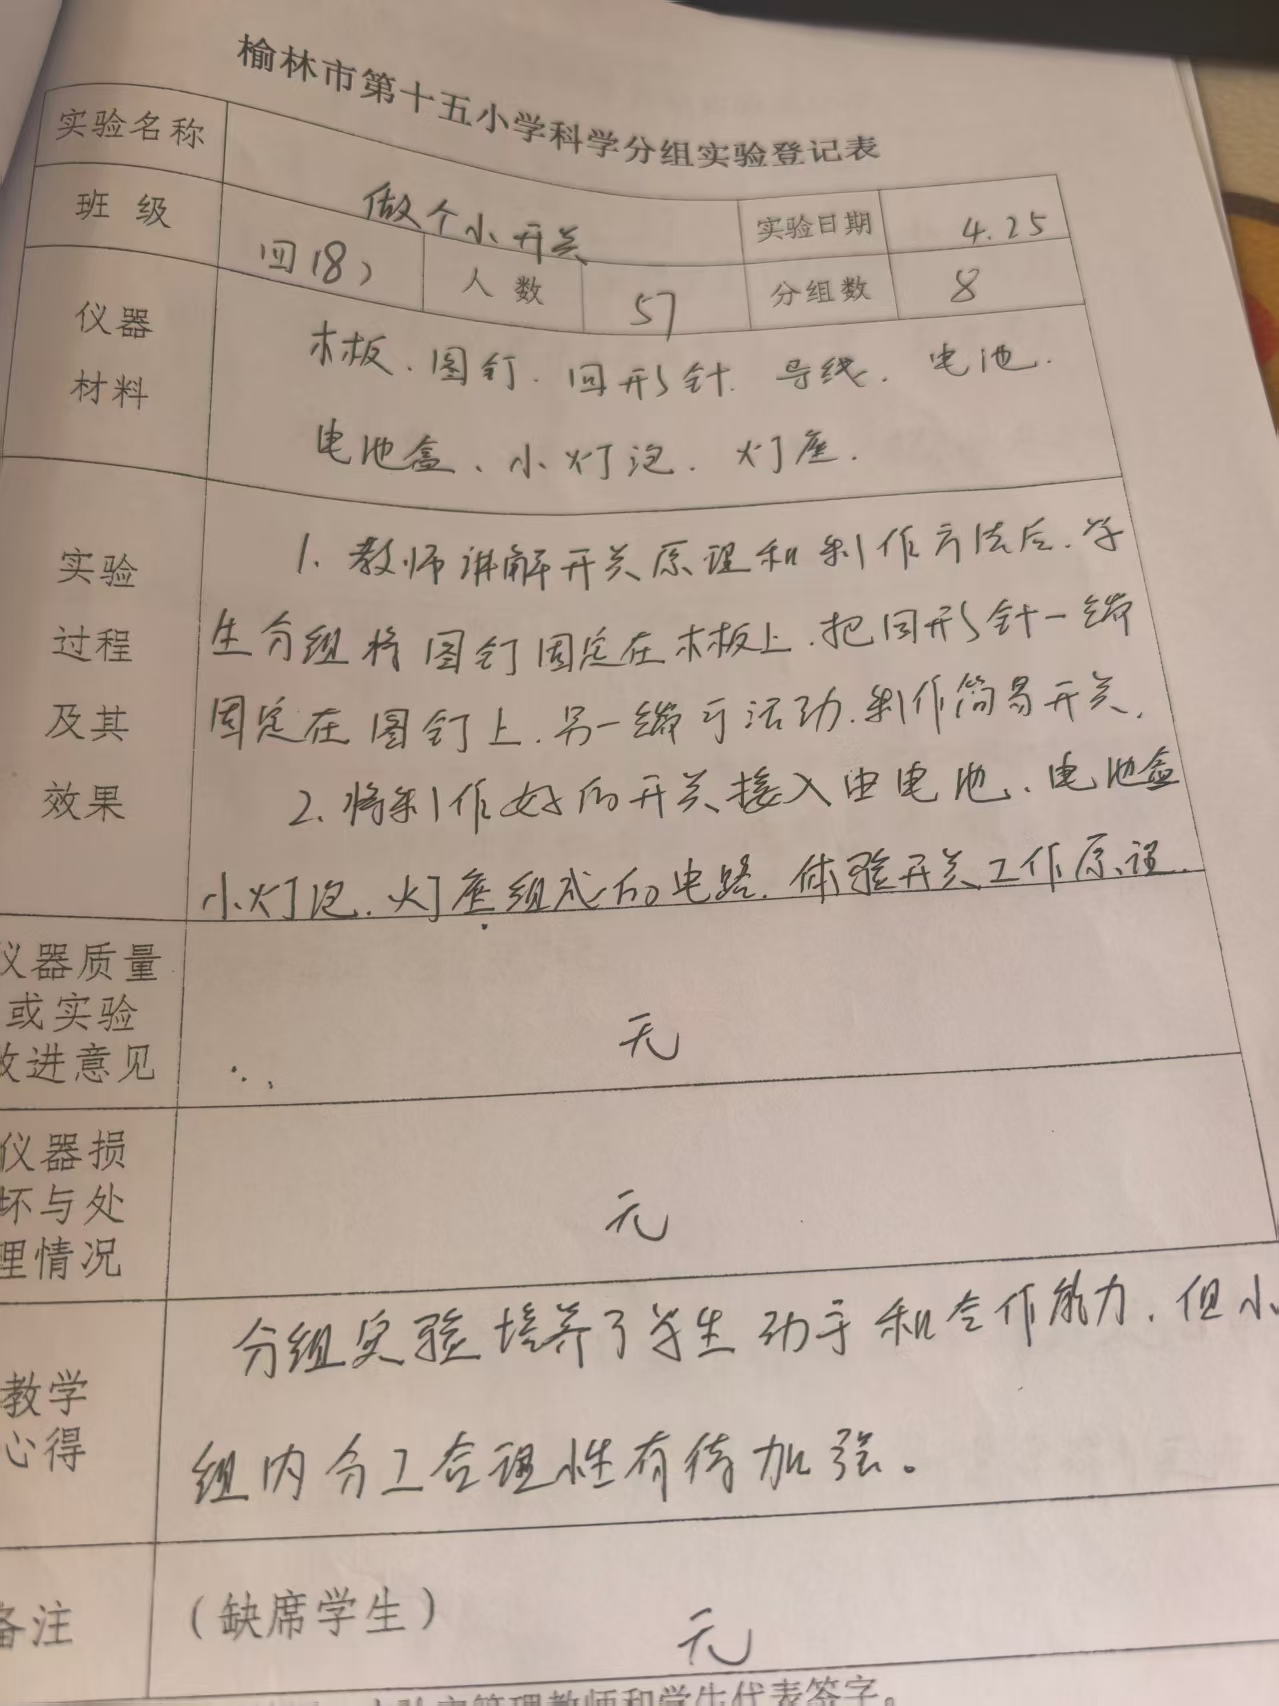 榆林市第十五小学科学分组实验登记表
实验名称 做个小开关 实验日期 4.25
班级 四(8) 人数 57 分组数 8
仪器
材料
木板、图钉、回形针、导线、电池、
电池盒、小灯泡、灯座.
实验
过程
及其
效果
1. 教师讲解开关原理和制作方法后,学
生分组将图钉固定在木板上,把回形针一端
固定在图钉上,另一端可活动,制作简易开关.
2. 将制作好的开关接入由电池、电池盒
小灯泡、灯座组成的电路,体验开关工作原理.
仪器质量
或实验
改进意见
无
仪器损
坏与处
理情况
无
教学
心得
分组实验培养了学生动手和合作能力,但小
组内分工合理性有待加强。
备注
(缺席学生) 无
管理教师和学生代表签字。